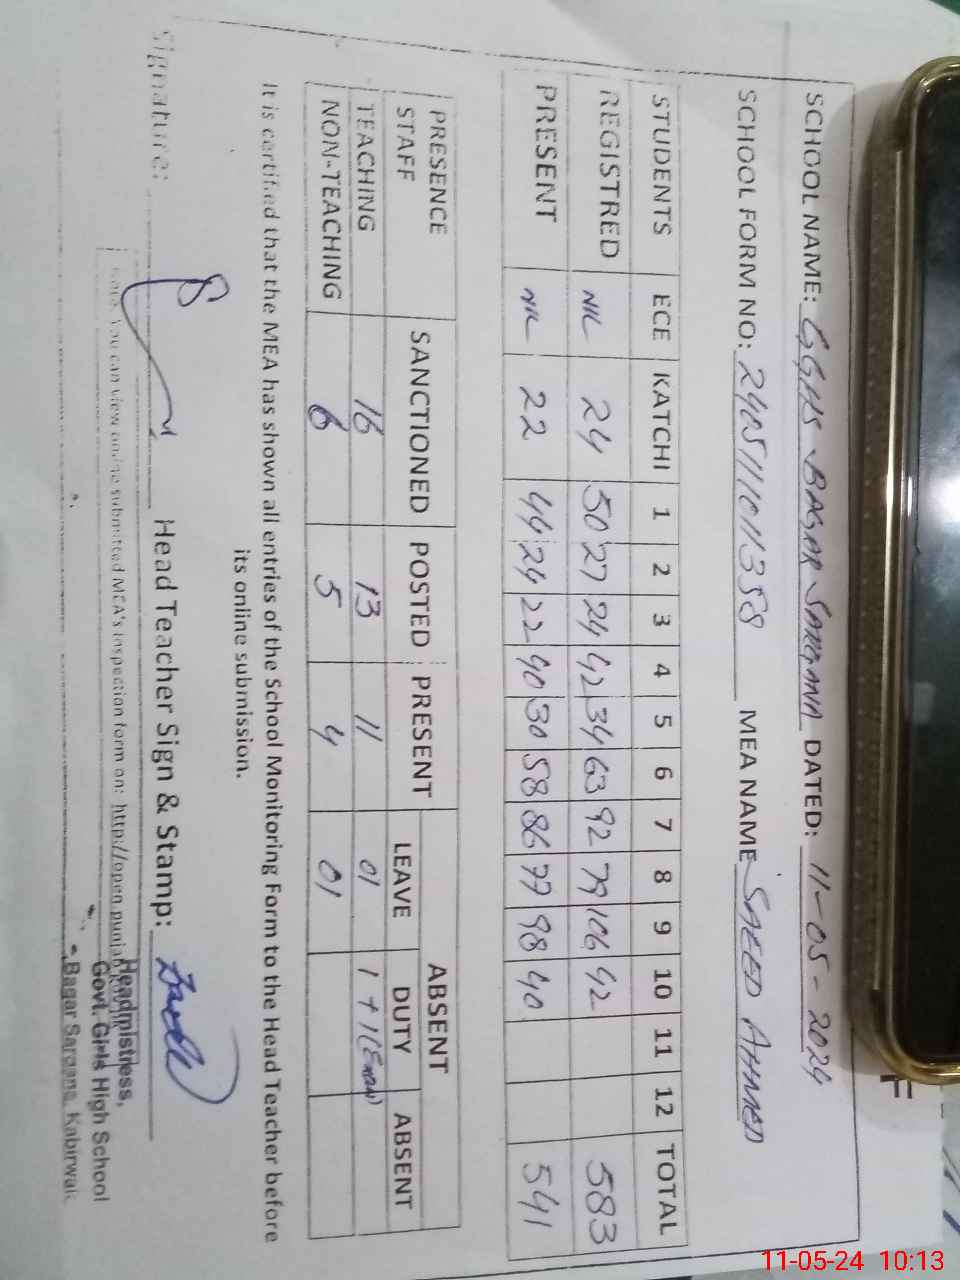 SCHOOL NAME: GGHS BAGAR SARGANA DATED: 11-05-2024
SCHOOL FORM NO: 2405111011358 MEA NAME SAEED AHMED
STUDENTS ECE KATCHI 1 2 3 4 5 6 7 8 9 10 11 12 TOTAL
REGISTRED NIL 24 50 27 24 42 34 63 92 79 106 42 583
PRESENT NIL 22 44 24 22 40 30 58 86 77 98 40 541
PRESENCE STAFF SANCTIONED POSTED PRESENT ABSENT
LEAVE DUTY ABSENT
TEACHING 16 13 11 01 1+1(EXAM)
NON-TEACHING 6 5 4 01
It is certified that the MEA has shown all entries of the School Monitoring Form to the Head Teacher before
its online submission.
Signature: Head Teacher Sign & Stamp:
You can view online submitted MEA's inspection form on: http://open.punjab
Headmistress,
Govt. Girls High School
Bagar Sargana, Kabirwala
11-05-24 10:13